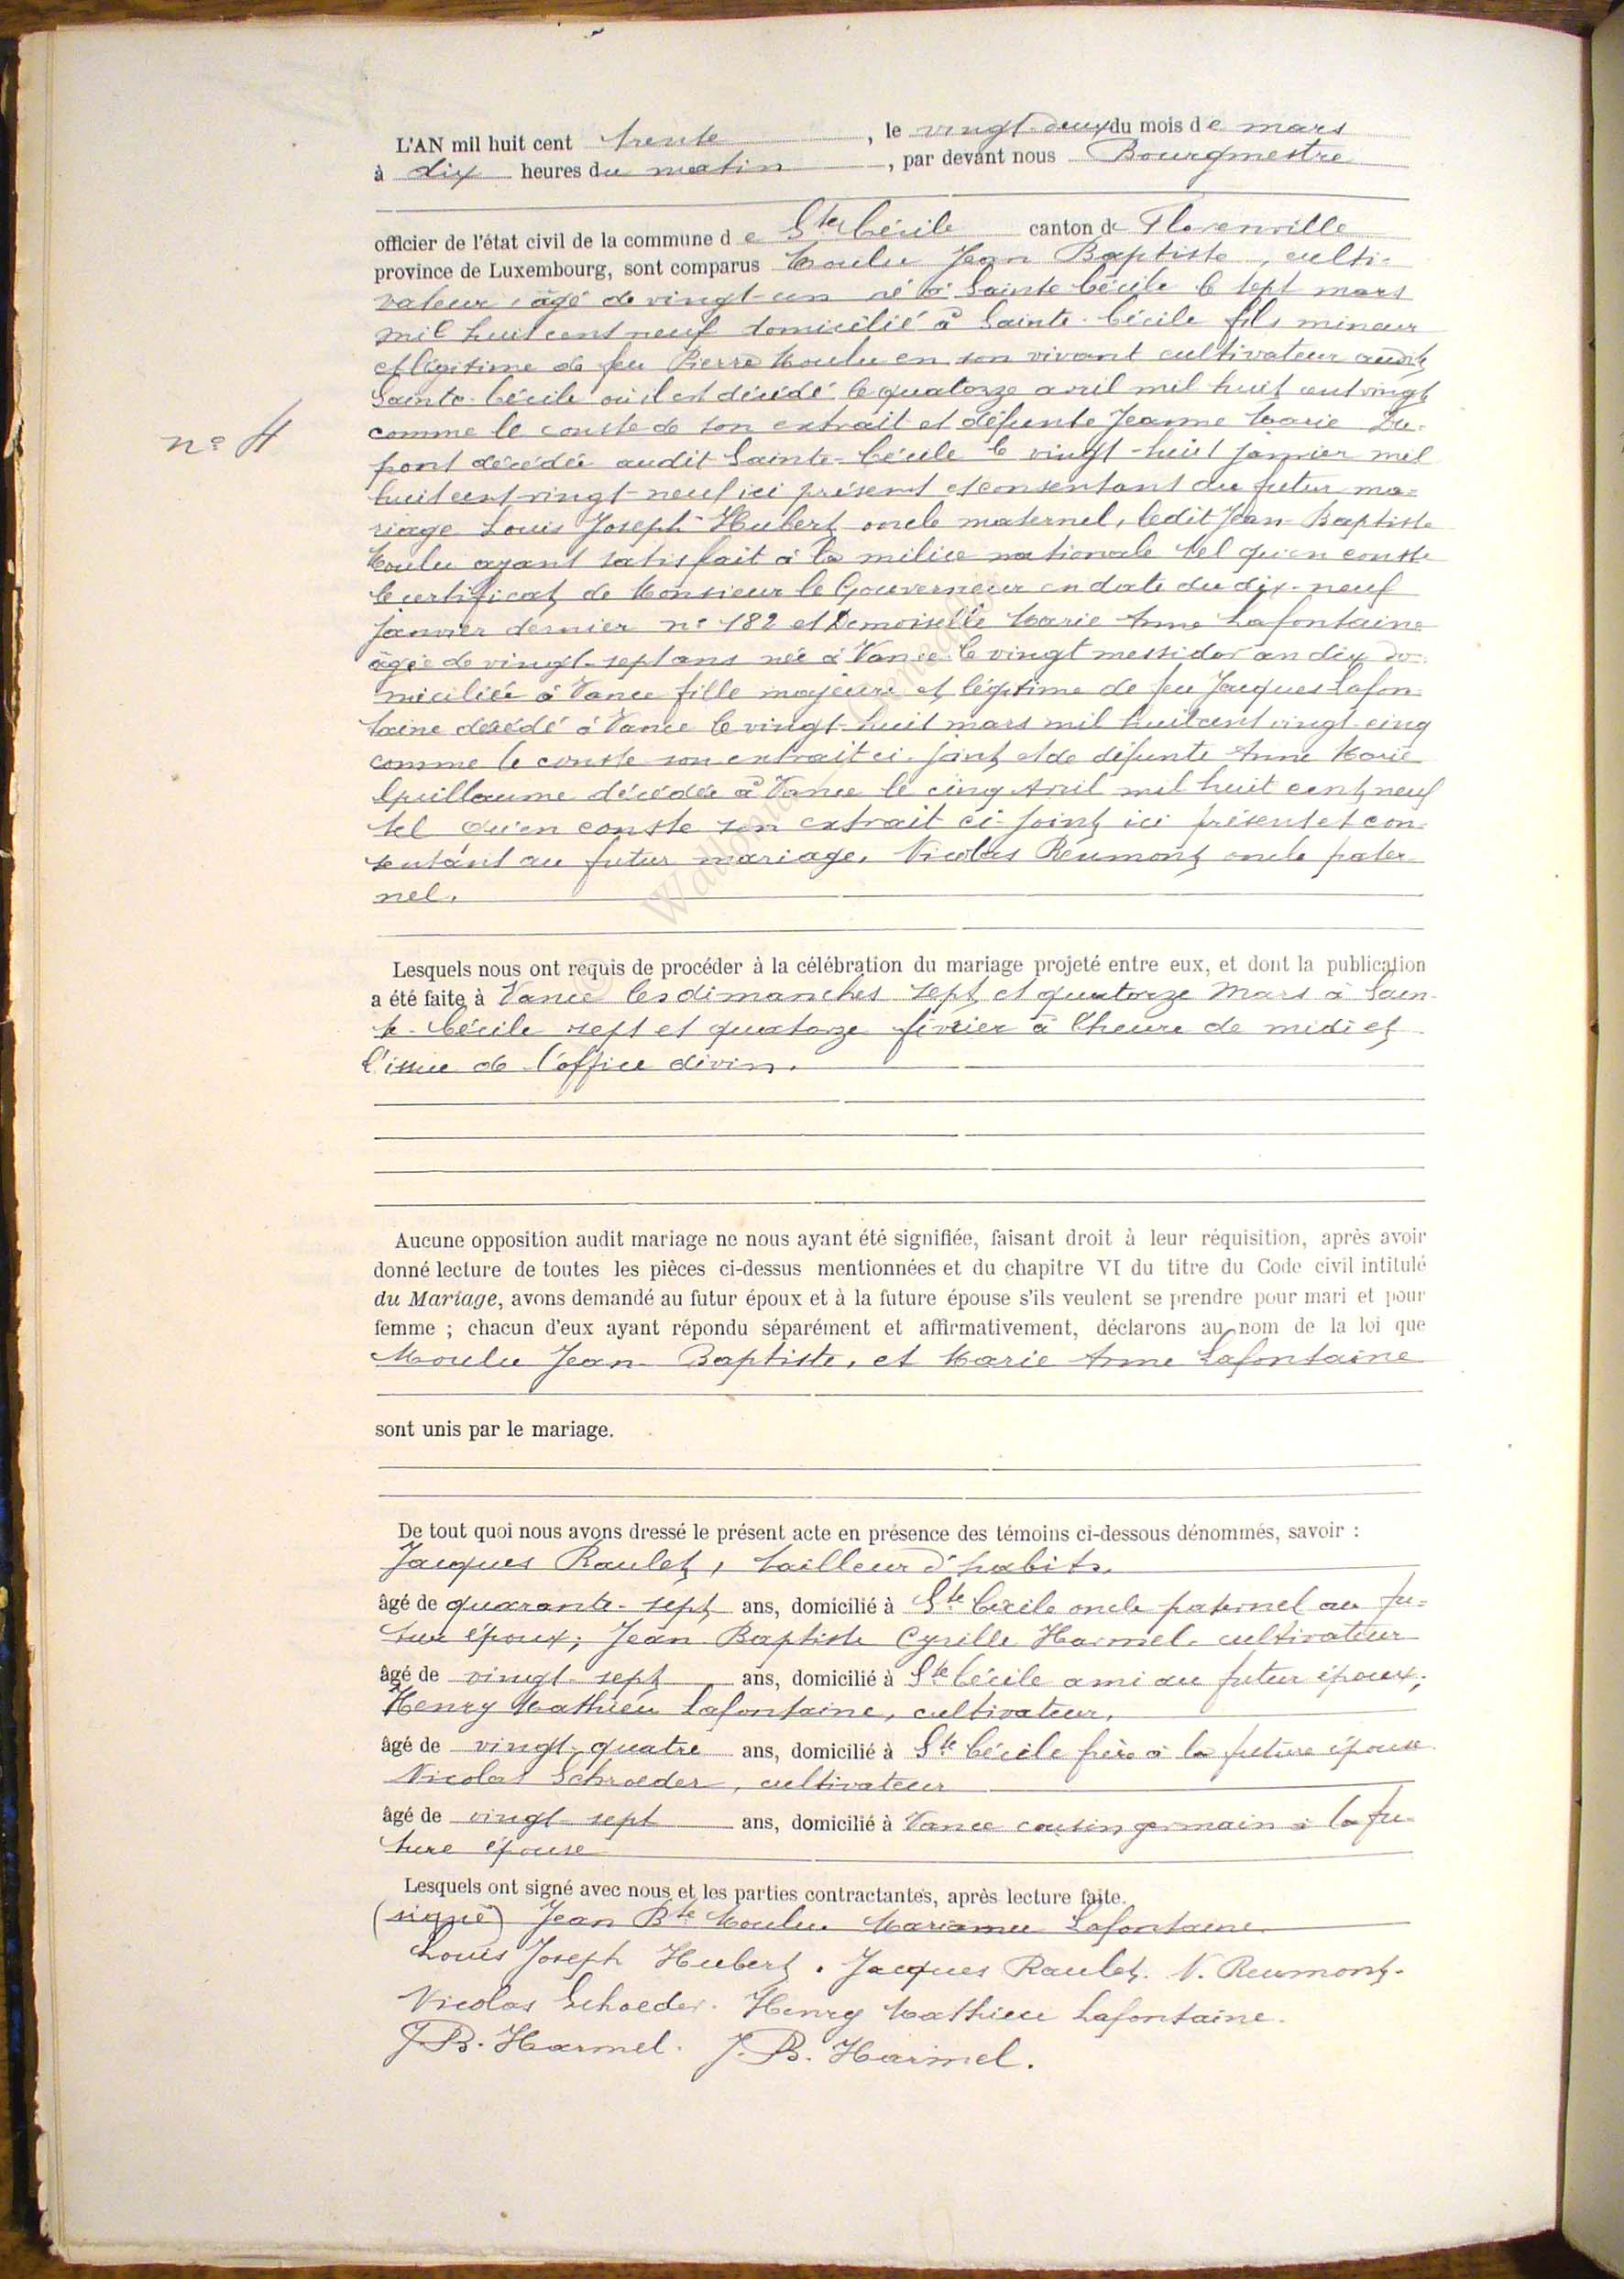 L'AN mil huit cent trente, le vingt-deux du mois de mars
à dix heures du matin, par devant nous Bourgmestre
officier de l'état civil de la commune de Ste Cécile canton de Florenville
province de Luxembourg, sont comparus Moulu Jean Baptiste, culti-
vateur âgé de vingt-un né à Sainte Cécile le sept mars
mil huit cent neuf domicilié à Sainte-Cécile fils mineur
et légitime de feu Pierre Moulu en son vivant cultivateur audit
Sainte-Cécile où il est décédé le quatorze avril mil huit cent vingt
comme le conste de son extrait et défunte Jeanne Marie Du-
n° 4
pont décédée audit Sainte-Cécile le vingt-huit janvier mil
huit cent vingt-neuf ici présent et consentant au futur ma-
riage Louis Joseph Hubert oncle maternel, ledit Jean-Baptiste
Moulu ayant satisfait à la milice nationale tel qu'en conste
le certificat de Monsieur le Gouverneur en date du dix-neuf
janvier dernier n° 182 et Demoiselle Marie Anne Lafontaine
âgée de vingt-sept ans née à Vance le vingt messidor an dix do-
miciliée à Vance fille majeure et légitime de feu Jacques Lafon-
taine décédé à Vance le vingt-huit mars mil huit cent vingt-cinq
comme le conste son extrait ci-joint et de défunte Anne Marie
Guillaume décédée à Vance le cinq Avril mil huit cent neuf
tel qu'en conste son extrait ci-joint ici présent et con-
sentant au futur mariage, Nicolas Réumont oncle pater-
nel.
© Wallonie
Lesquels nous ont requis de procéder à la célébration du mariage projeté entre eux, et dont la publication
a été faite à Vance les dimanches sept et quatorze Mars à Sain-
te-Cécile sept et quatorze février à l'heure de midi et
l'issue de l'office divin.
Aucune opposition audit mariage ne nous ayant été signifiée, faisant droit à leur réquisition, après avoir
donné lecture de toutes les pièces ci-dessus mentionnées et du chapitre VI du titre du Code civil intitulé
du Mariage, avons demandé au futur époux et à la future épouse s'ils veulent se prendre pour mari et pour
femme ; chacun d'eux ayant répondu séparément et affirmativement, déclarons au nom de la loi que
Moulu Jean-Baptiste, et Marie Anne Lafontaine
sont unis par le mariage.
De tout quoi nous avons dressé le présent acte en présence des témoins ci-dessous dénommés, savoir :
Jacques Raulet, tailleur d'habits.
âgé de quarante-sept ans, domicilié à Ste Cécile oncle paternel au fu-
tur époux; Jean-Baptiste Cyrille Harmel cultivateur
âgé de vingt-sept ans, domicilié à Ste Cécile ami au futur époux;
Henry Mathieu Lafontaine, cultivateur,
âgé de vingt-quatre ans, domicilié à Ste Cécile frère à la future épouse
Nicolas Schroeder, cultivateur
âgé de vingt-sept ans, domicilié à Vance cousin germain à la fu-
ture épouse
Lesquels ont signé avec nous et les parties contractantes, après lecture faite.
(signé) Jean Bte Moulu. Marianne Lafontaine
Louis Joseph Hubert. Jacques Raulet. N. Reumont.
Nicolas Schoeder. Henry Mathieu Lafontaine.
J. B. Harmel. J. B. Harmel.